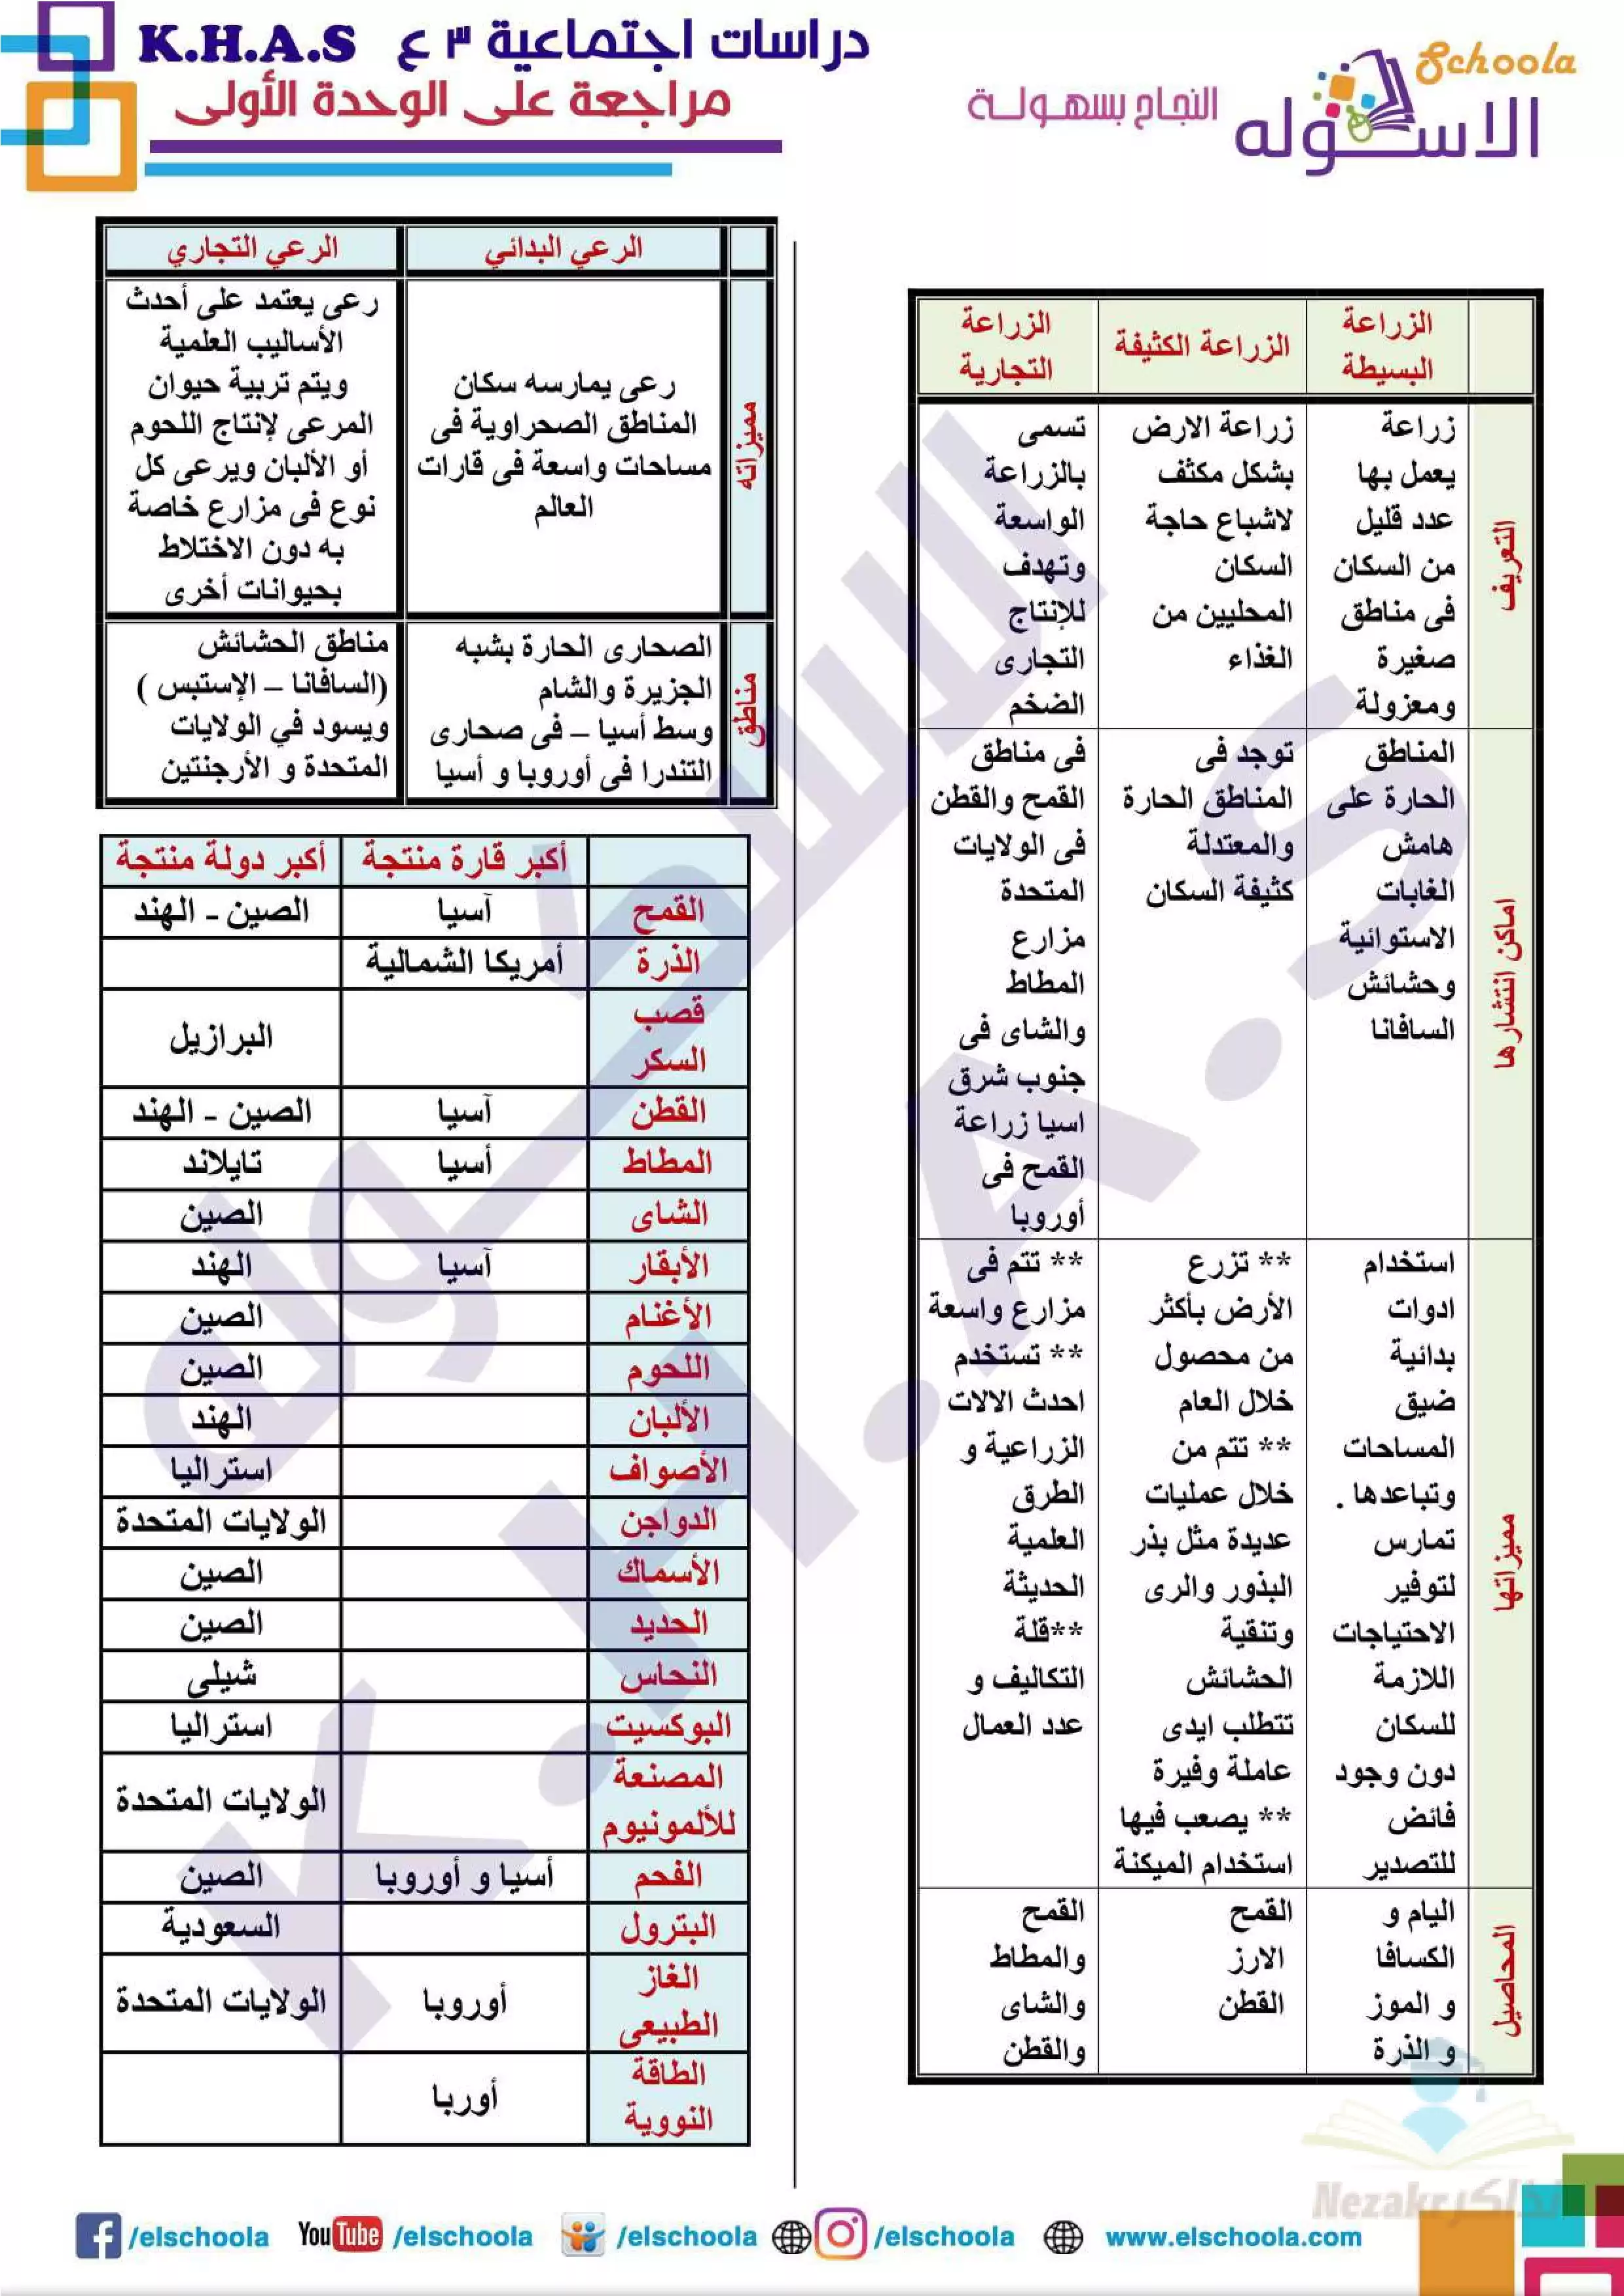 دراسات اجتماعية ٣ ع K.H.A.S
مراجعة على الوحدة الأولى
النجاح بسهولة
Schoola
الاسكوله
الزراعة البسيطة
الزراعة الكثيفة
الزراعة التجارية
التعريف
زراعة
يعمل بها
عدد قليل
من السكان
فى مناطق
صغيرة
ومعزولة
زراعة الارض
بشكل مكثف
لاشباع حاجة
السكان
المحليين من
الغذاء
تسمى
بالزراعة
الواسعة
وتهدف
للإنتاج
التجارى
الضخم
اماكن انتشارها
المناطق
الحارة على
هامش
الغابات
الاستوائية
وحشائش
السافانا
توجد فى
المناطق الحارة
والمعتدلة
كثيفة السكان
فى مناطق
القمح والقطن
فى الولايات
المتحدة
مزارع
المطاط
والشاى فى
جنوب شرق
اسيا زراعة
القمح فى
أوروبا
مميزاتها
استخدام
ادوات
بدائية
ضيق
المساحات
وتباعدها .
تمارس
لتوفير
الاحتياجات
اللازمة
للسكان
دون وجود
فائض
للتصدير
** تزرع
الأرض بأكثر
من محصول
خلال العام
** تتم من
خلال عمليات
عديدة مثل بذر
البذور والرى
وتنقية
الحشائش
تتطلب ايدى
عاملة وفيرة
** يصعب فيها
استخدام الميكنة
** تتم فى
مزارع واسعة
** تستخدم
احدث الالات
الزراعية و
الطرق
العلمية
الحديثة
**قلة
التكاليف و
عدد العمال
المحاصيل
اليام و
الكسافا
و الموز
و الذرة
القمح
الارز
القطن
القمح
والمطاط
والشاى
والقطن
الرعي البدائي
الرعي التجاري
مميزاته
رعى يمارسه سكان
المناطق الصحراوية فى
مساحات واسعة فى قارات
العالم
رعى يعتمد على أحدث
الأساليب العلمية
ويتم تربية حيوان
المرعى لإنتاج اللحوم
أو الألبان ويرعى كل
نوع فى مزارع خاصة
به دون الاختلاط
بحيوانات أخرى
مناطق
الصحارى الحارة بشبه
الجزيرة والشام
وسط أسيا – فى صحارى
التندرا فى أوروبا و أسيا
مناطق الحشائش
(السافانا – الإستبس )
ويسود في الولايات
المتحدة و الأرجنتين
أكبر قارة منتجة أكبر دولة منتجة
القمح آسيا الصين - الهند
الذرة أمريكا الشمالية
قصب
السكر
البرازيل
القطن آسيا الصين - الهند
المطاط أسيا تايلاند
الشاى الصين
الأبقار آسيا الهند
الأغنام الصين
اللحوم الصين
الألبان الهند
الأصواف استراليا
الدواجن الولايات المتحدة
الأسماك الصين
الحديد الصين
النحاس شيلى
البوكسيت استراليا
المصنعة
للألمونيوم
الولايات المتحدة
الفحم أسيا و أوروبا الصين
البترول السعودية
الغاز
الطبيعى
أوروبا الولايات المتحدة
الطاقة
النووية
أوربا
الاسكوله
K.H.A.S
نذاكر Nezakr
/elschoola YouTube /elschoola /elschoola /elschoola www.elschoola.com